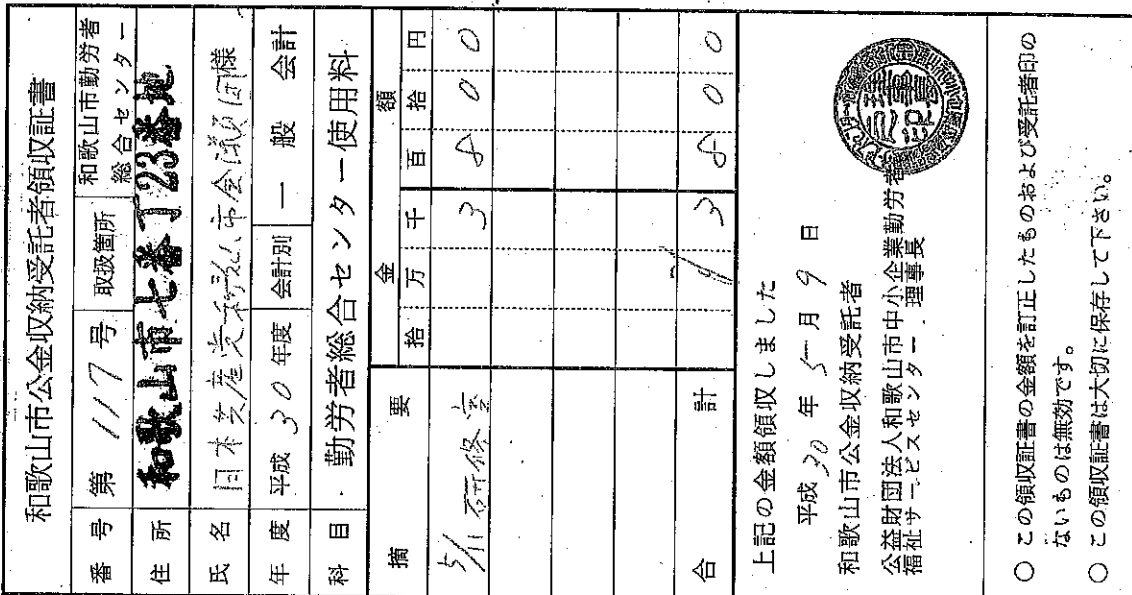 和歌山市公金収納受託者領収証書
番号 第 117 号 取扱箇所 和歌山市勤労者総合センター
住所 和歌山市七番丁23番地
氏名 日本共産党和歌山市会議員団様
年度 平成 30 年度 会計別 一般会計
科目 勤労者総合センター使用料
摘要 金額
拾 万 千 百 拾 円
5/11 研修室 3 8 0 0
合計 ¥ 3 8 0 0
上記の金額領収しました
平成 30 年 5 月 9 日
和歌山市公金収納受託者
公益財団法人和歌山市中小企業勤労者
福祉サービスセンター 理事長
○ この領収証書の金額を訂正したものおよび受託者印の
ないものは無効です。
○ この領収証書は大切に保存して下さい。